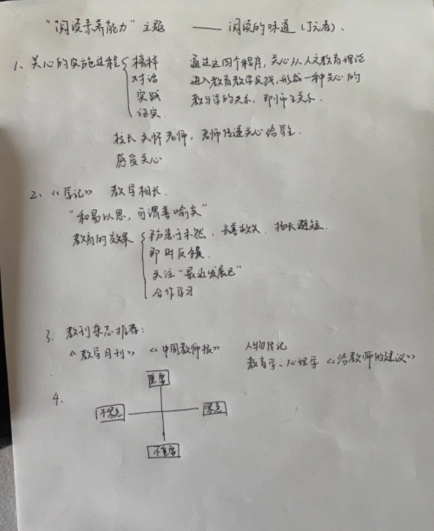 “阅读素养能力”主题 —— 阅读的味道（J元君）.
1、关心的实施过程 榜样 通过这四个程序,关心从人文教育理论
对话 进入教育教学实践,形成一种关心的
实践 教与学的关系,即师生关系.
证实.
校长关怀老师,老师传递关心给学生.
感受关心
2、《学记》 教学相长.
“和易以思,可谓善喻矣”
教育的效果 防患于未然、长善救失、扬长避短.
即时反馈.
关注“最近发展区”
合作学习
3、教刊杂志推荐:
《教学月刊》《中国教师报》 人物传记
教育学、心理学《给教师的建议》
4、
重要
不紧急 紧急
不重要